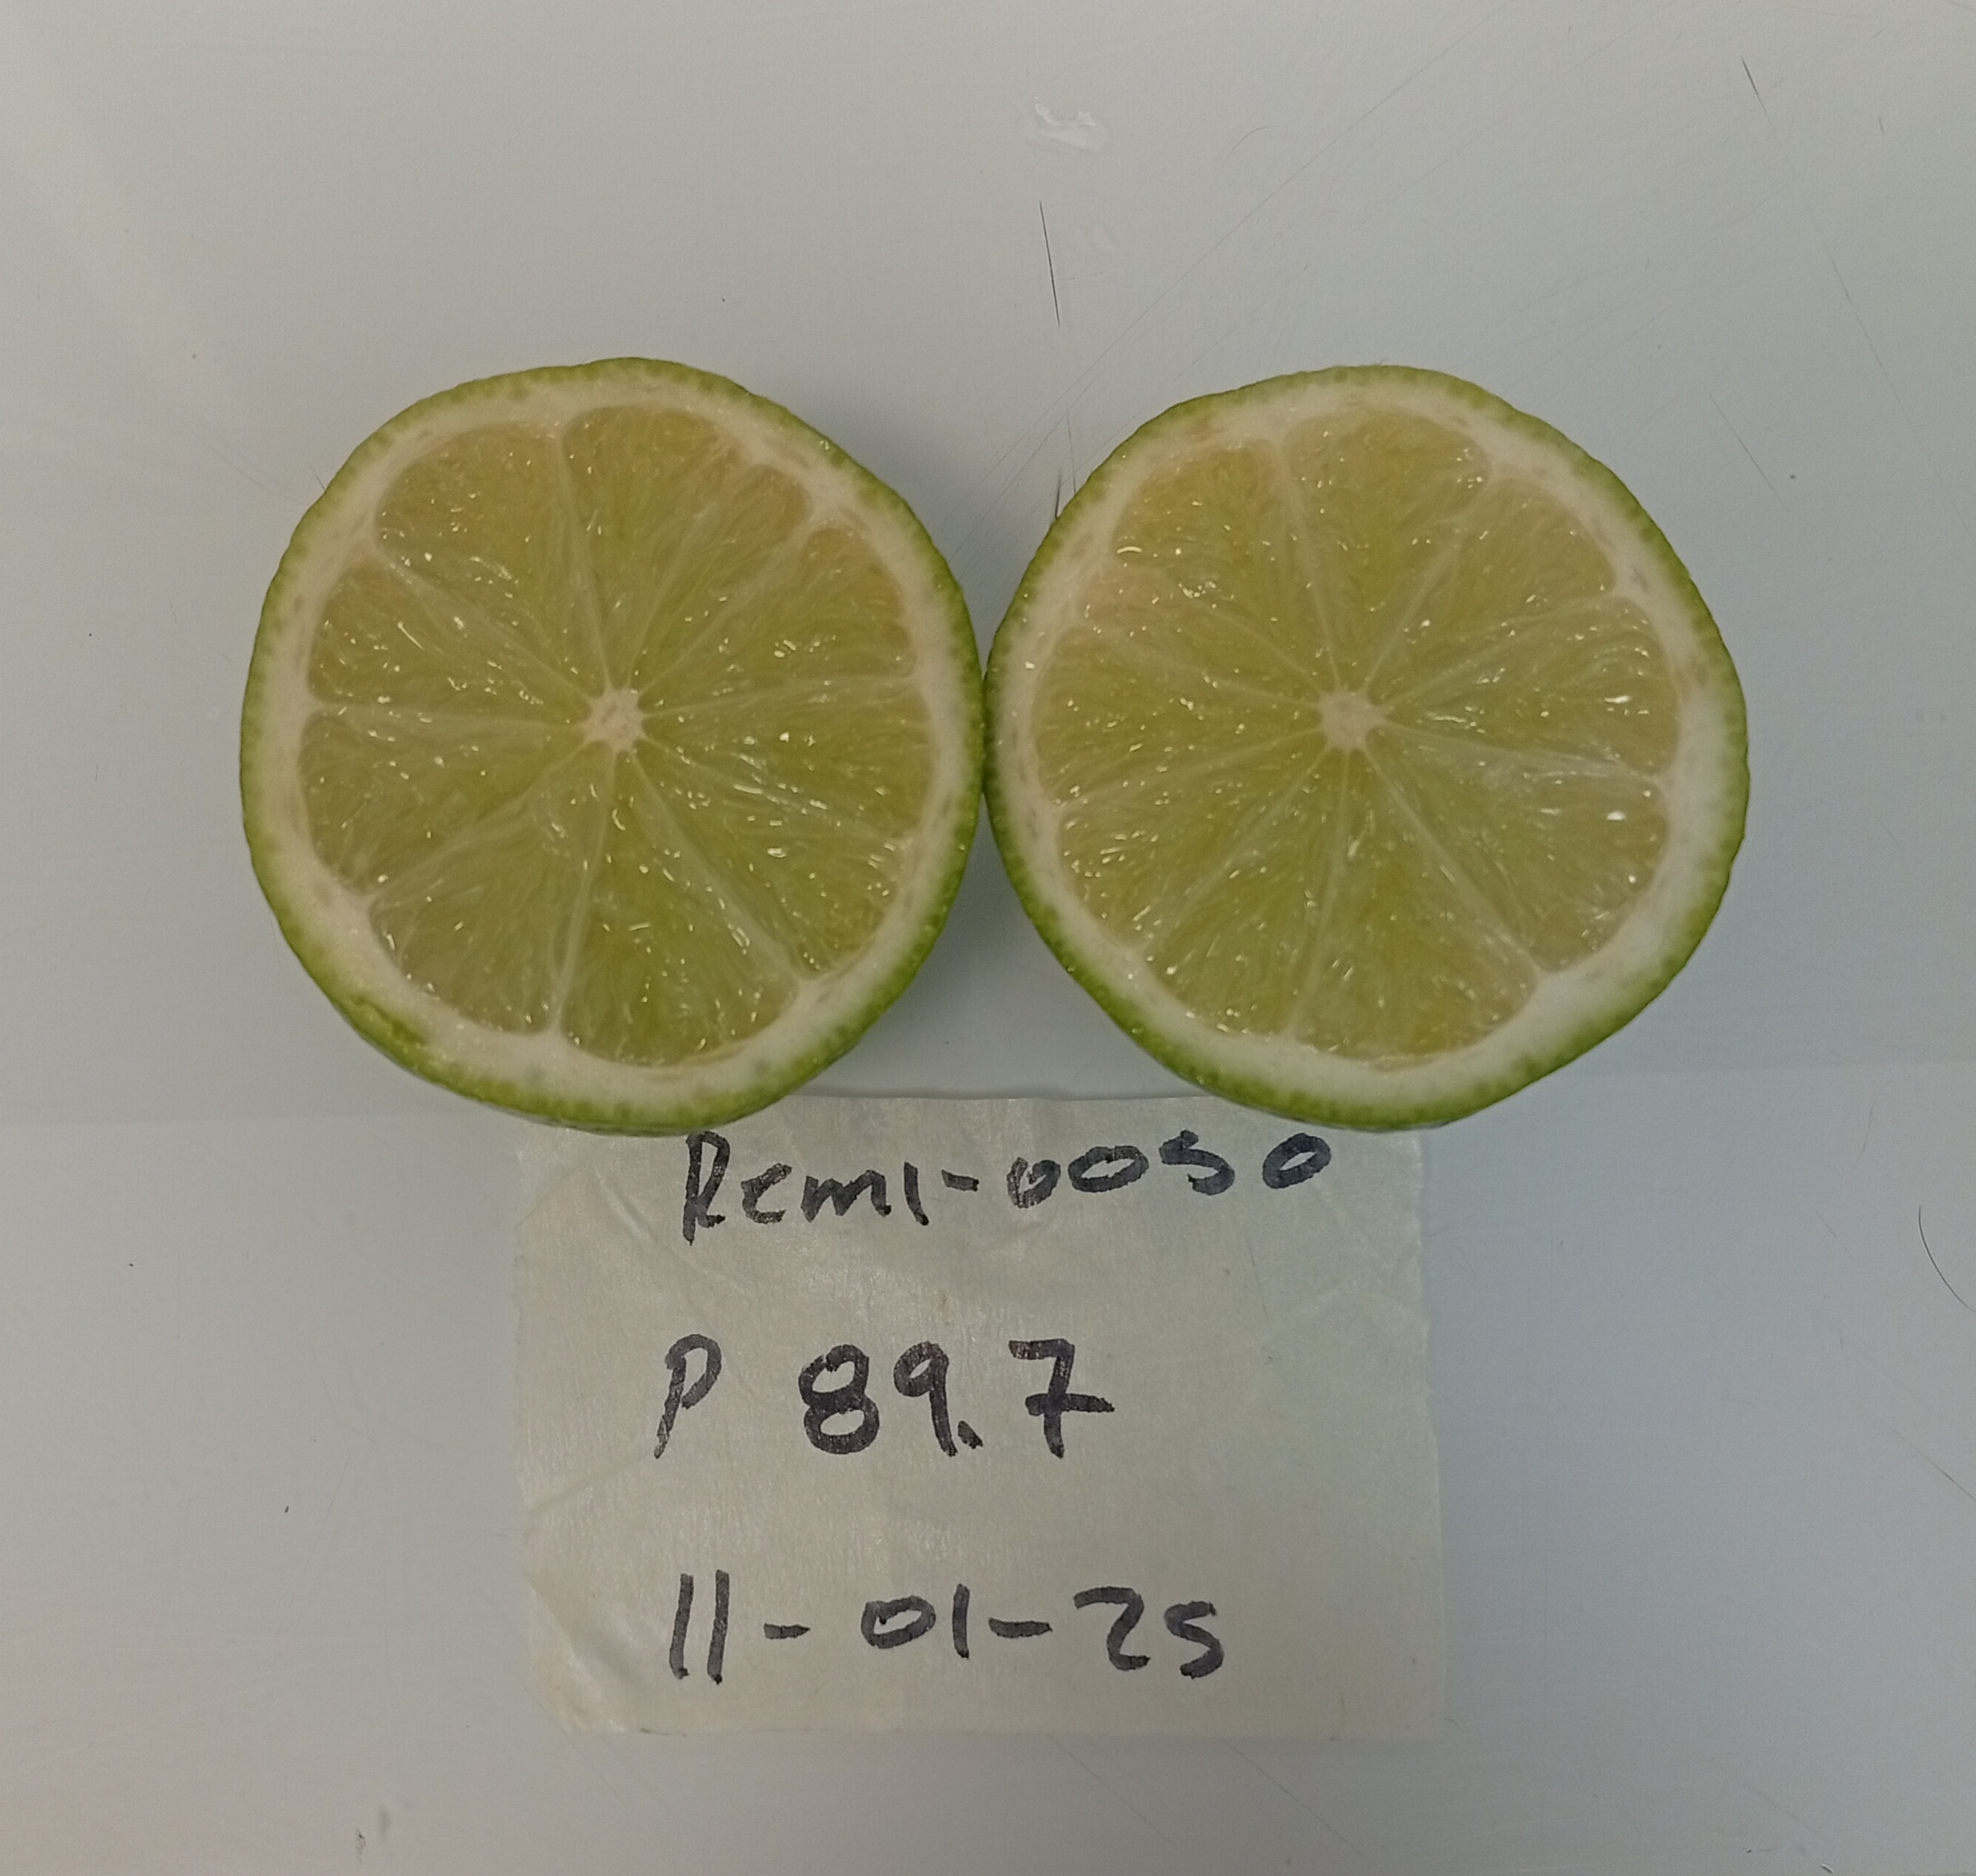 Rem1-0050
P 89.7
11-01-25